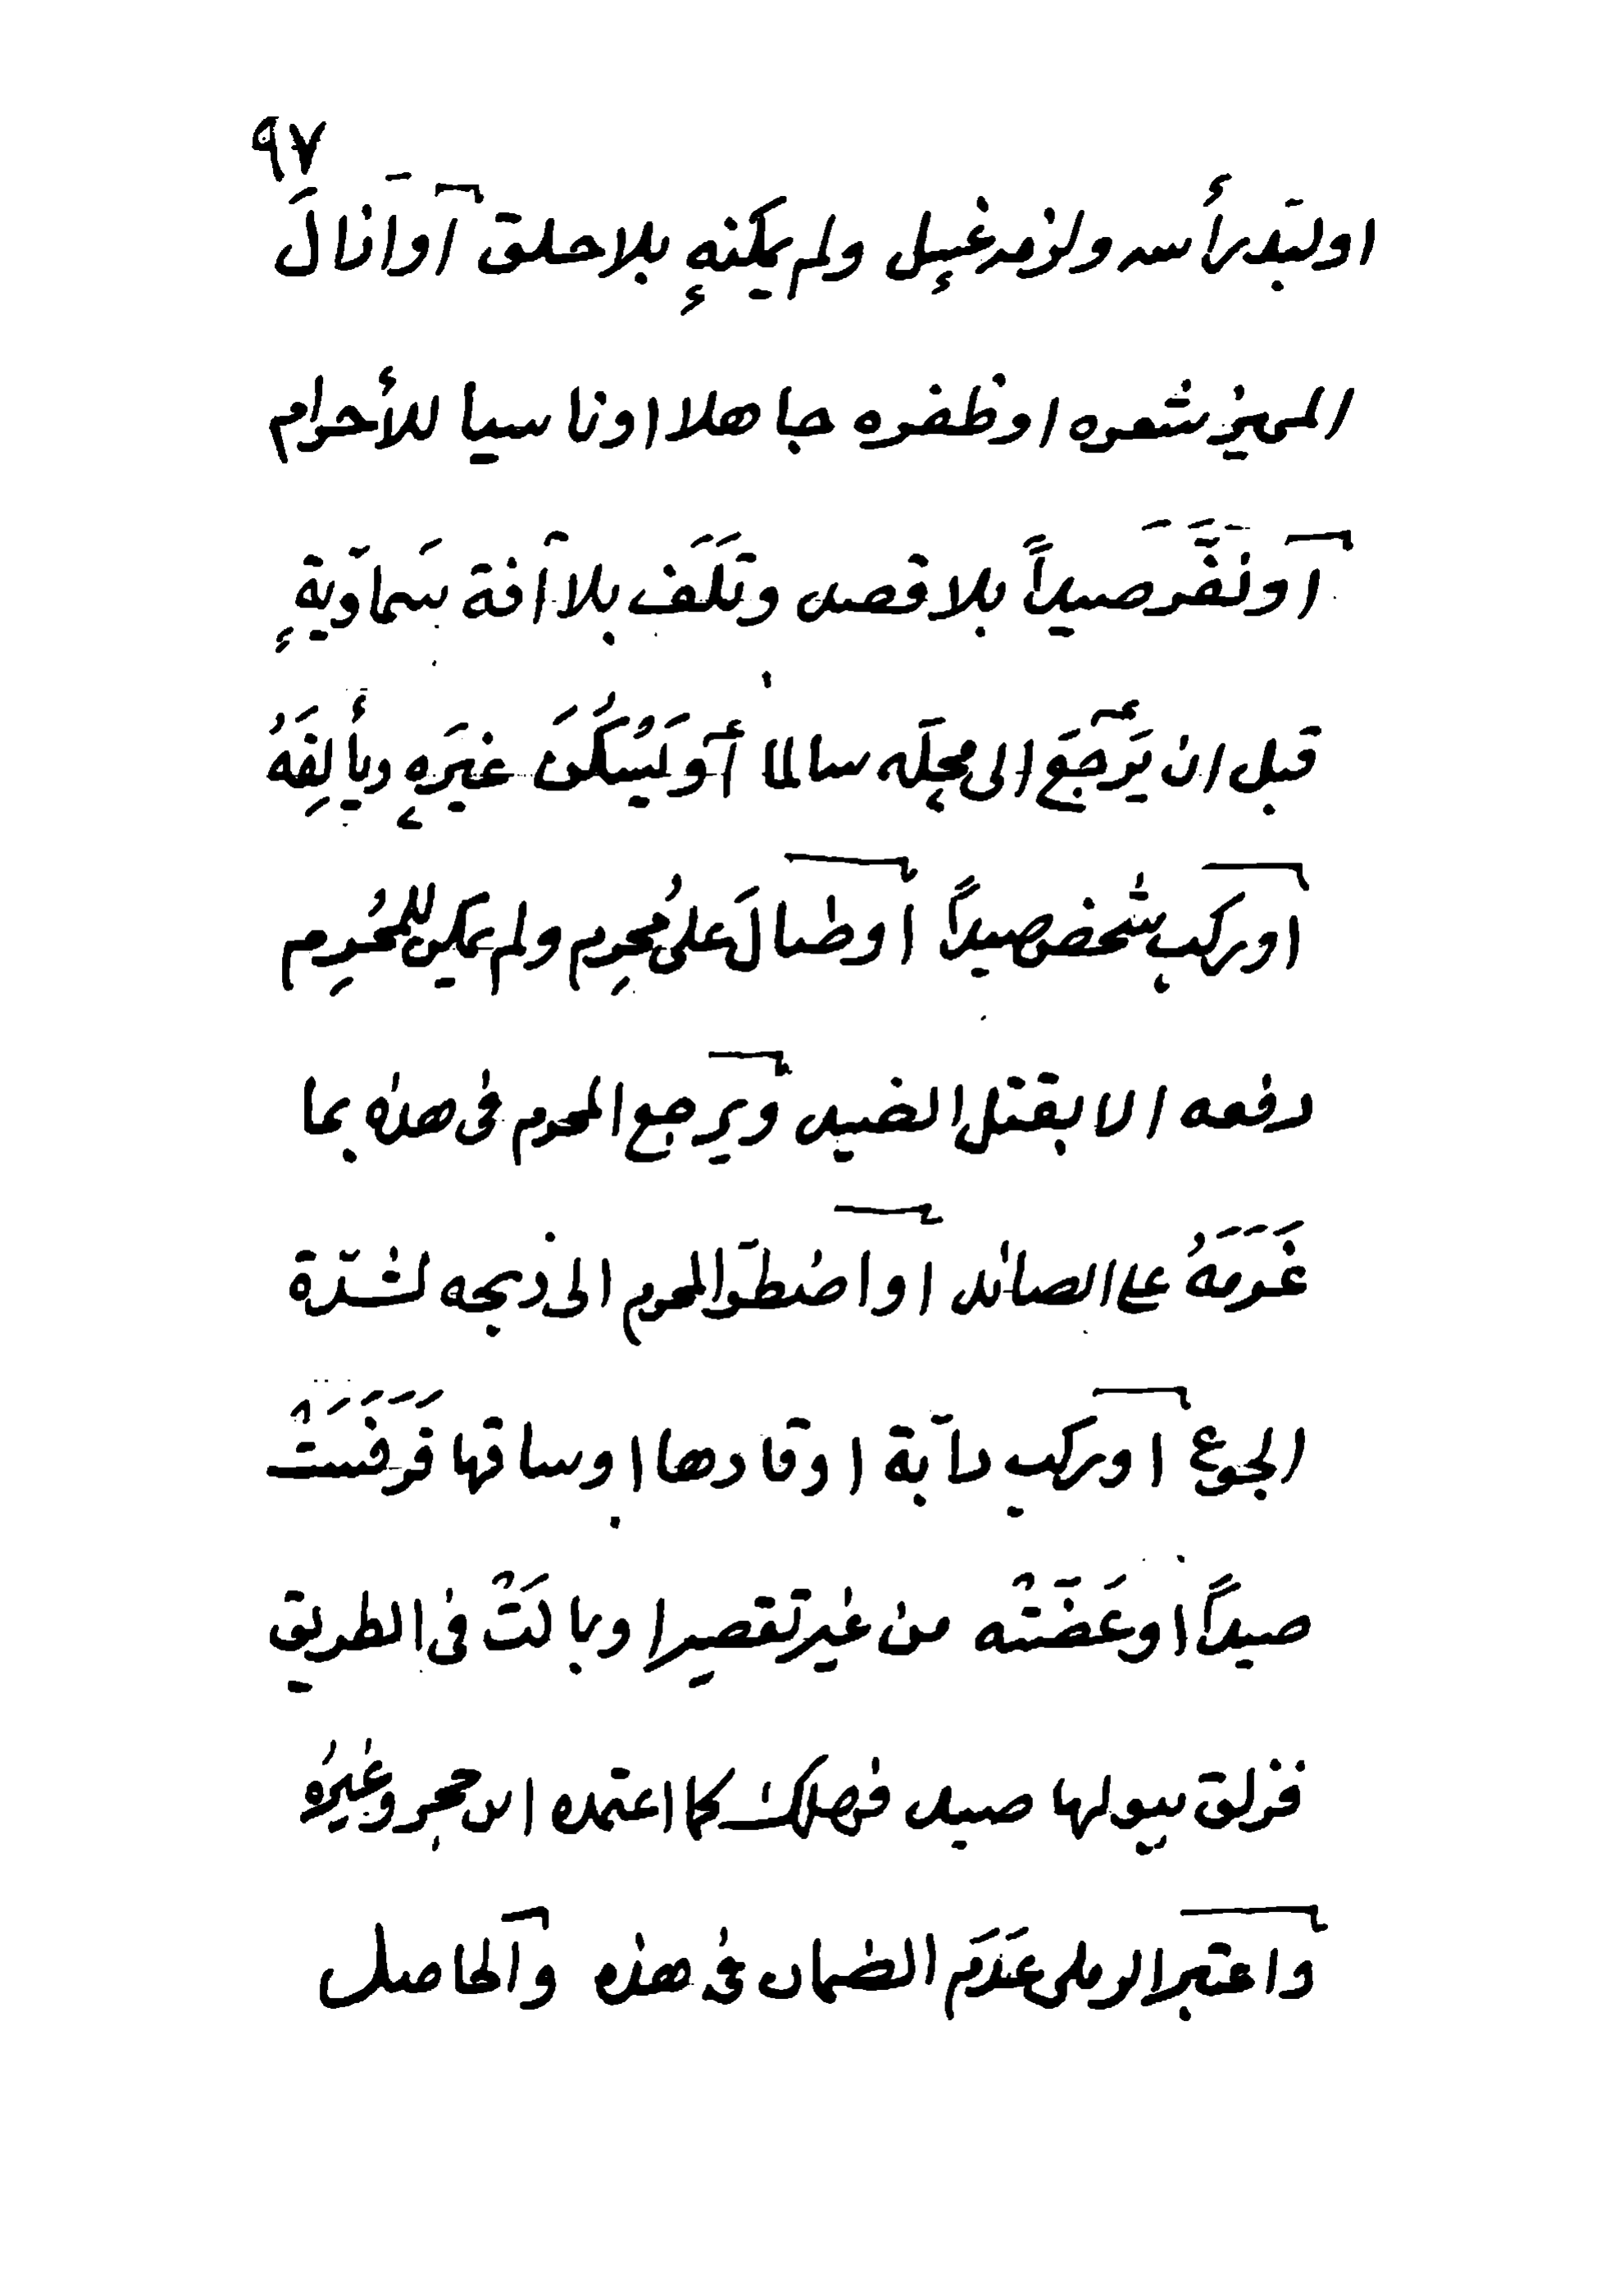 ٩٧
او لبّد رأسه ولزمه غسل ولم يمكنه بلا حلق أو أزالَ
المميز شعره او ظفره جاهلا او ناسيا للأحرام
أو نَفَّرَ صيداً بلا قصد وتَلَف بلا آفة سَماوّية
قبل ان يَرجَعَ الى محِلّه سالما أو يَسْكُنَ غيَره ويأْلِفَهُ
او ركب شخص صيداً أوصَالَ على مُحرِم ولم يمكن للمُحرِم
دفعه الا بقتل الصيد ويرجع المحرم فى هذه بما
غَرَمَهُ على الصائد او اضطرّ المحرم الى ذبحه لشدّة
الجوع او ركب دآبة او قادها او ساقها فَرَفَسَتْ
صيداً او عَضّتْه من غير تقصير او بالَتْ فى الطريق
فزلق ببولها صيد فهلك كما اعتمده ابن حجر وغيرُه
واعتبر الرملى عَدَم الضمان فى هذه وألحاصل